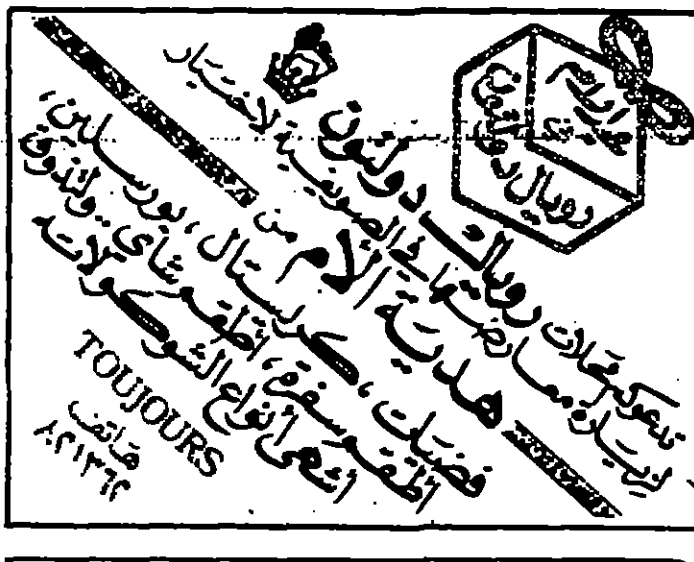 هدايا وأكثر
رويال دولتون
تدعوكم محلات رويال دولتون
لزيارة معارضها في الصويفية لاختيار
هدية الأم من
فضيات، كريستال، بورسلين،
أطقم سفرة، أطقم شاي.. ولتذوق
أشهى أنواع الشوكولاته
TOUJOURS
هاتف
٨٢١٣٦٢